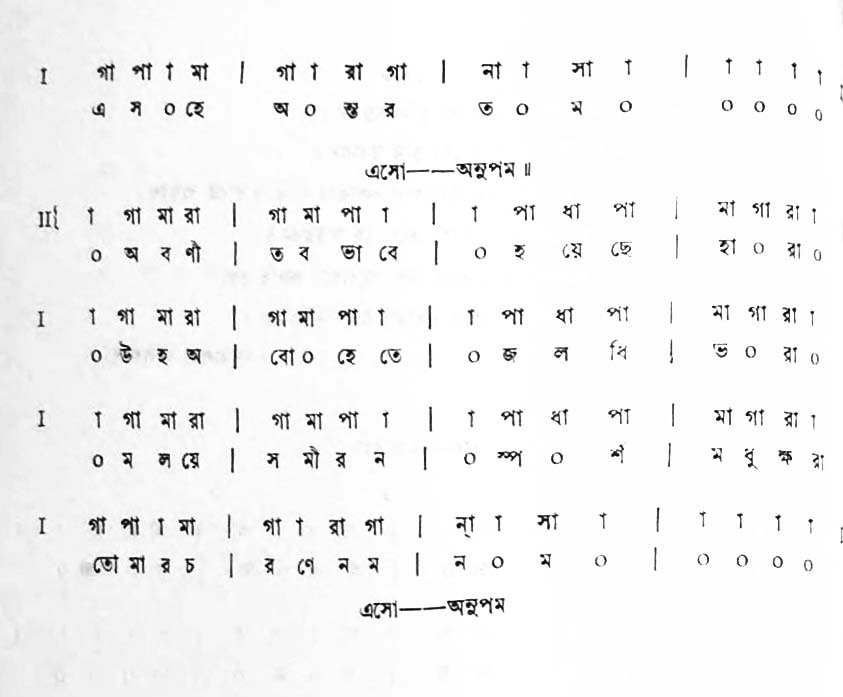 I গা পা া মা | গা া রা গা | না া সা া | া া া া I
এ স ০ হে অ ০ ন্ত র ত ০ ম ০ ০ ০ ০ ০
এসো——অনুপম ॥
II{ া গা মা রা | গা মা পা া | া পা ধা পা | মা গা রা া
০ অ ব ণী | ত ব ভা বে | ০ হ য়ে ছে | হা ০ রা ০
I া গা মা রা | গা মা পা া | া পা ধা পা | মা গা রা া
০ উ হ অ | বো ০ হে তে | ০ জ ল ধি | ভ ০ রা ০
I া গা মা রা | গা মা পা া | া পা ধা পা | মা গা রা া
০ ম ল য়ে | স মী র ন | ০ স্প ০ র্শ | ম ধু ক্ষ রা
I গা পা া মা | গা া রা গা | ন্‌া া সা া | া া া া I
তো মা র চ | র ণে ন ম | ন ০ ম ০ | ০ ০ ০ ০
এসো——অনুপম